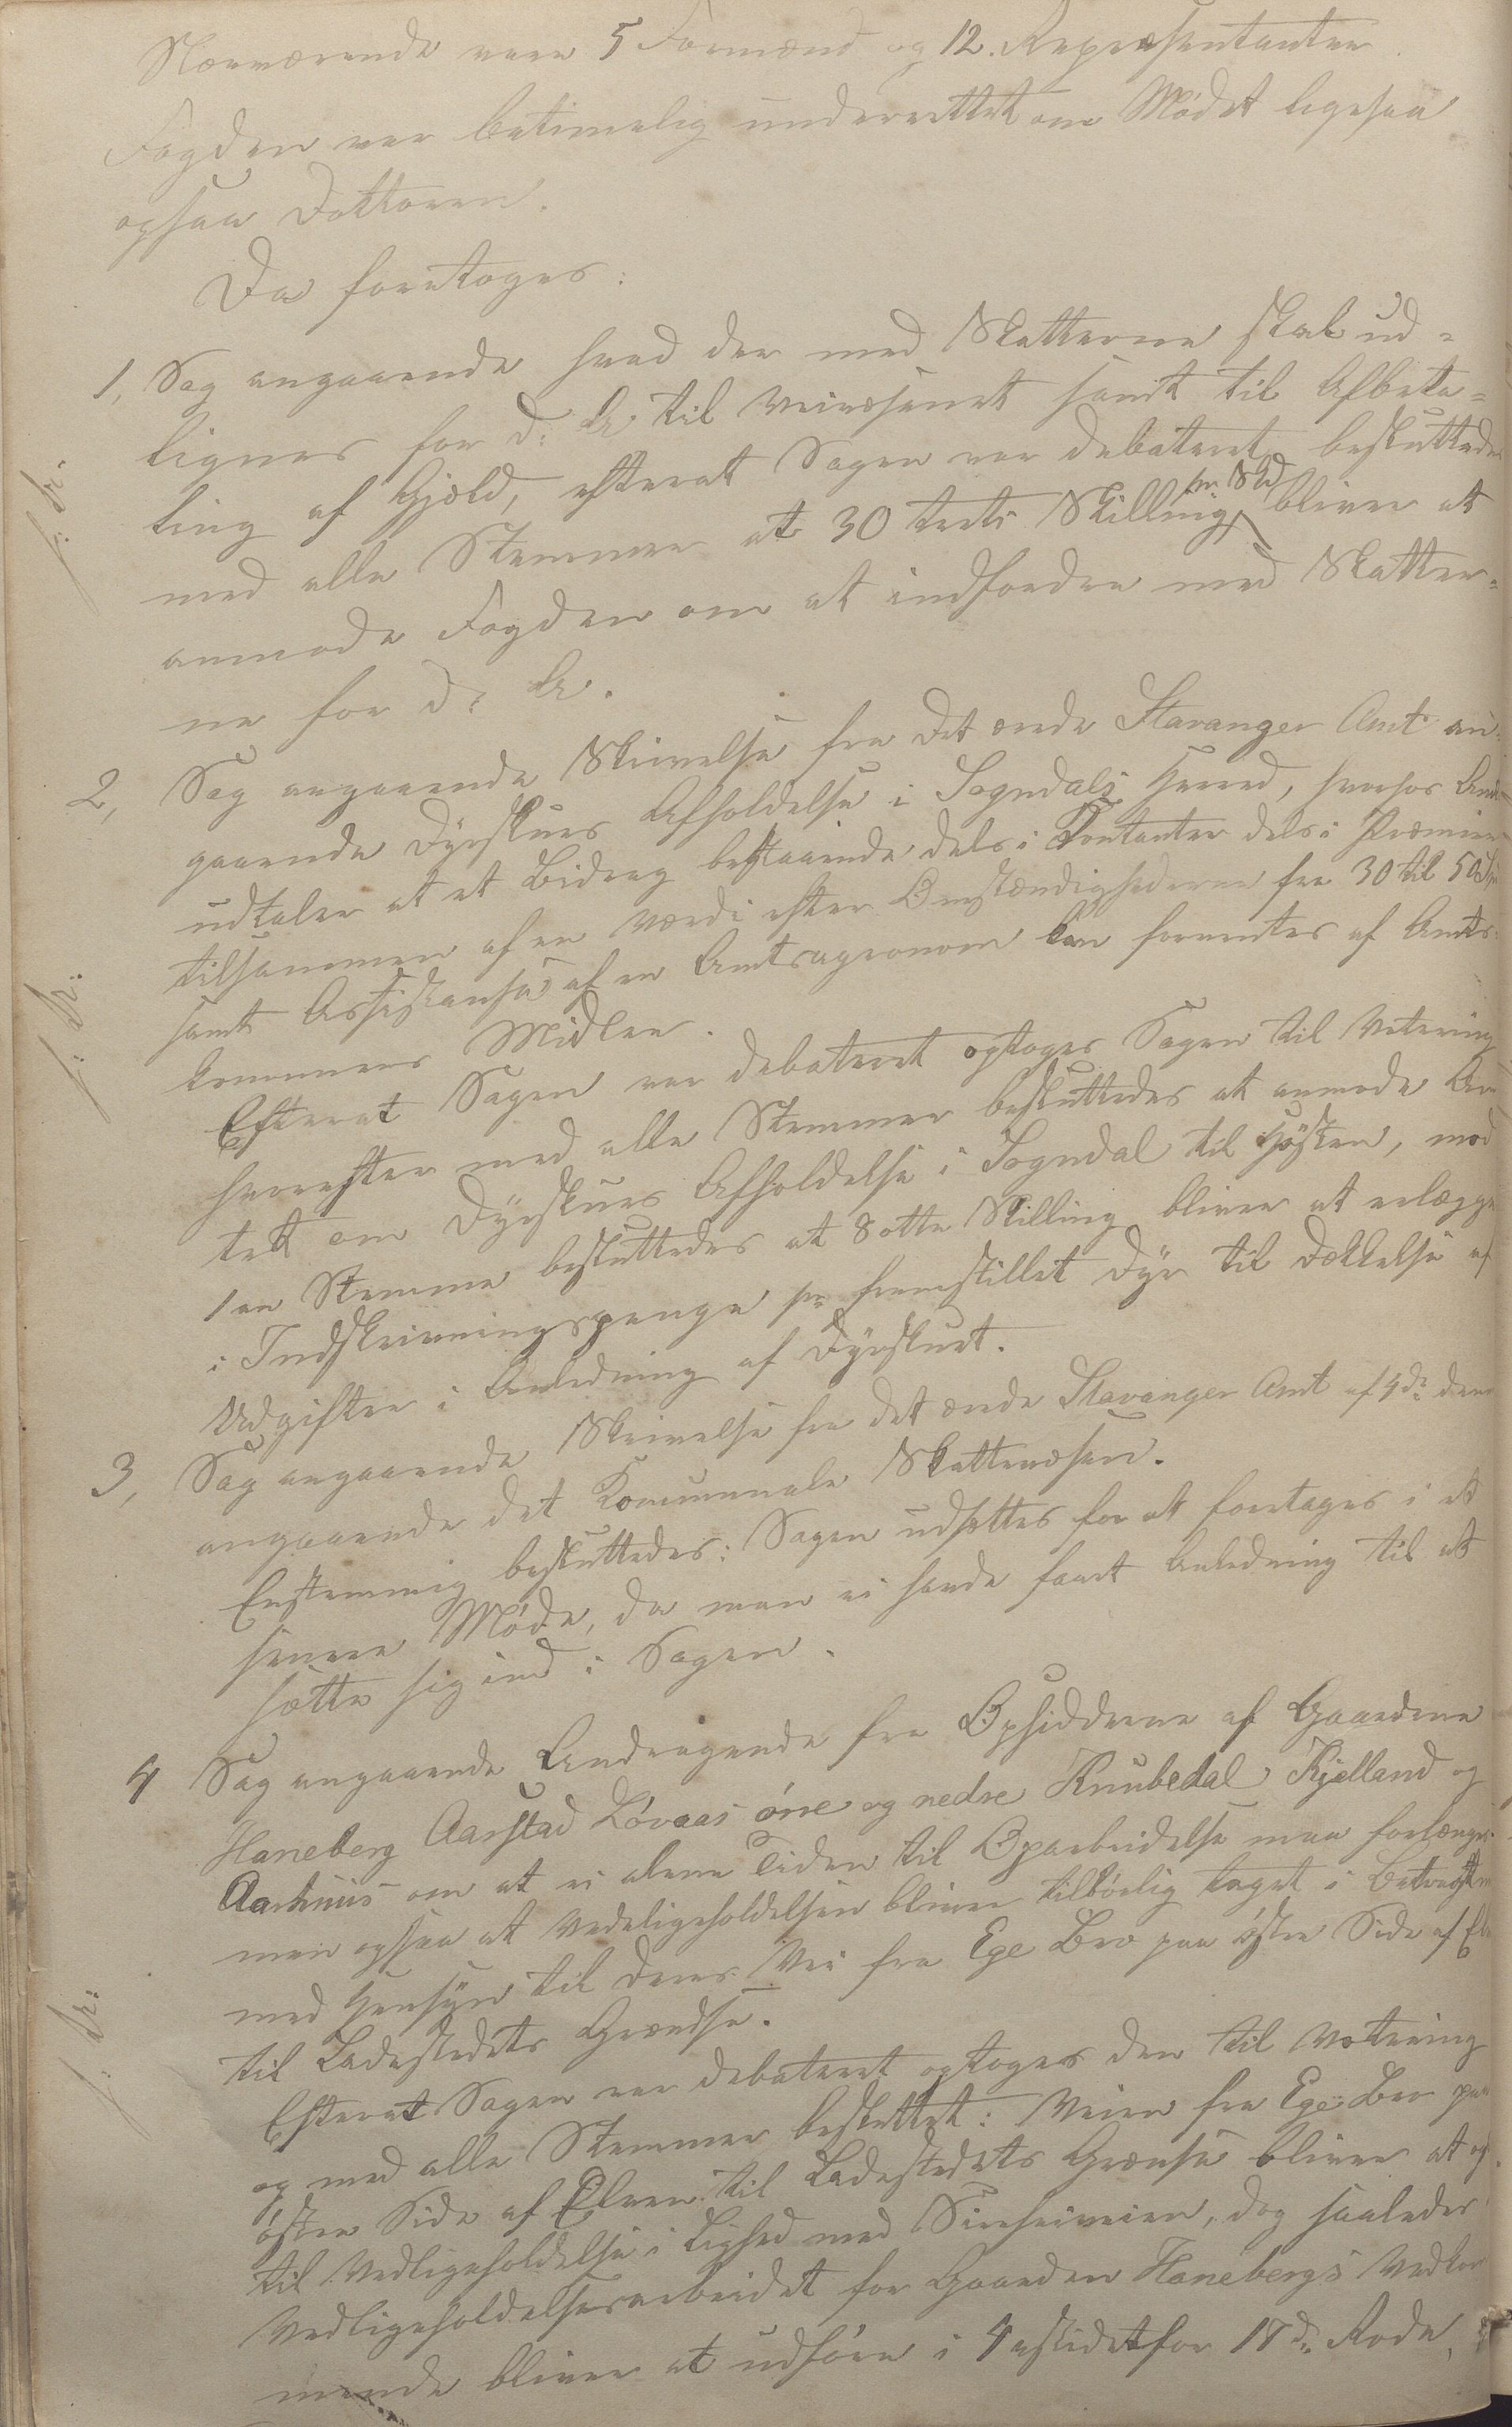 Nærværende vare 5 Formænd og 12. Repræsentanter.
Fogden var betimelig underrettet om Mødet ligesaa
ogsaa Doktoren.
Da foretoges:
1, Sag angaaende hvad der med Skatterne skal ud=
lignes for d: A. til Veivæsenet samt til Afbeta=
ling af Gjæld, efterat Sagen var debateret besluttedes
med alle Stemmer at 30 treti Skilling pr Skd bliver at
anmode Fogden om at indfordre med Skatter=
ne for d: A.
2, Sag angaaende Skrivelse fra det ærede Stavanger Amt an=
gaaende Dyrskues Afholdelse i Sogndals Herred, hvorhos Amtet
udtaler at et Bidrag bestaaende dels i Kontanter dels i Præmier
tilsammen af en Værdi efter Omstændighederne fra 30 til 50 Spd
samt Assistanse af en Amtsagronom kan forventes af Amts=
kommunens Midler.
Efterat Sagen var debateret optoges Sagen til Votering
hvorefter med alle Stemmer besluttedes at anmode Am=
tet om Dyrskues Afholdelse i Sogndal til Høsten, mod
1 en Stemme besluttedes at 8 otte Skilling bliver at erlægge
i Indskrivningspenge pr fremstillet Dyr til Dækkelse af
Udgifter i Anledning af Dyrskuet.
3, Sag angaaende Skrivelse fra det ærede Stavanger Amt af 4de dennes
angaaende det Kommunale Skattevæsen.
Enstemmig besluttedes: Sagen udsættes for at foretages i et
senere Møde, da man ei havde faaet Anledning til at
sætte sig ind i Sagen.
4 Sag angaaende Andragende fra Opsidderne af Gaardene
Haneberg Aarstad Løvaas øvre og nedre Knubedal Kjelland og
Aarhuus om at ei alene Tiden til Oparbeidelse maa forlænges
men ogsaa at Vedligeholdelsen bliver tilbørlig taget i Betragtning
med Hensyn til deres Vei fra Ege Bro paa østre Side af Elven
til Ladestedets Grændse.
Efterat Sagen var debateret optoges den til Votering
og med alle Stemmer besluttet: Veien fra Ege Bro paa
østre Side af Elven til Ladestedets Grænse bliver at
til Vedligeholdelse i Lighed med Sireheiveien, dog saaledes
Vedligeholdelsesarbeidet for Gaarden Hanebergs Vedkom
mende bliver at udføre i 4 istedetfor 18de Rode,